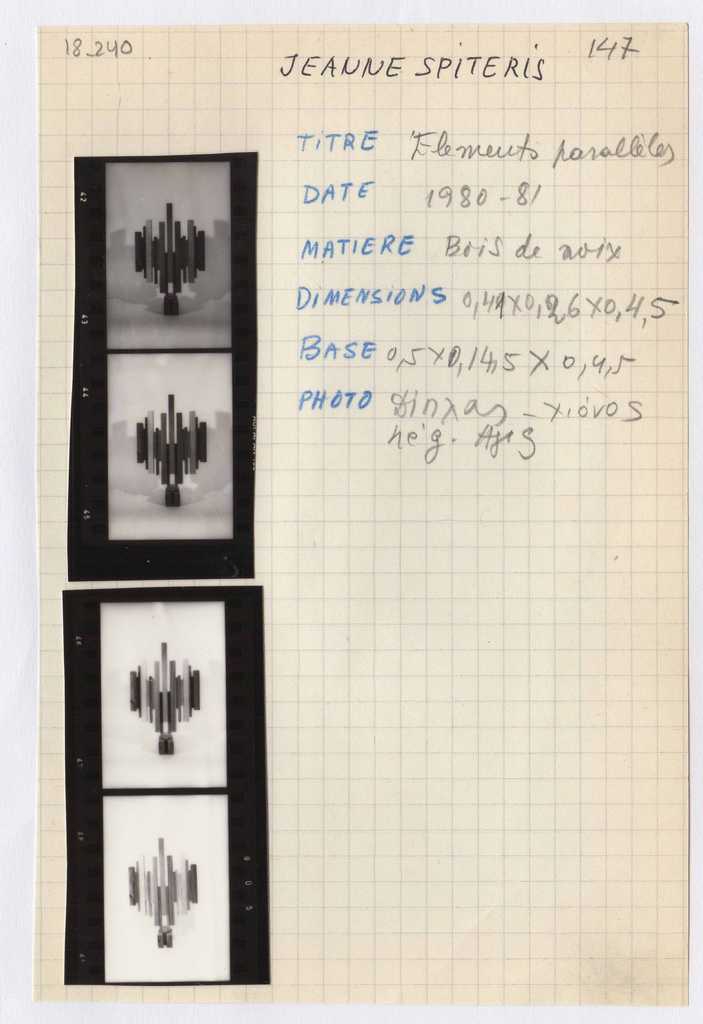 18.240
147
JEANNE SPITERIS
TITRE Elements parallèles
DATE 1980-81
MATIERE Bois de noix
DIMENSIONS 0,41X0,26X0,4,5
BASE 0,5X0,14,5X0,4,5
PHOTO Δίπλας - χιόνος
nég.